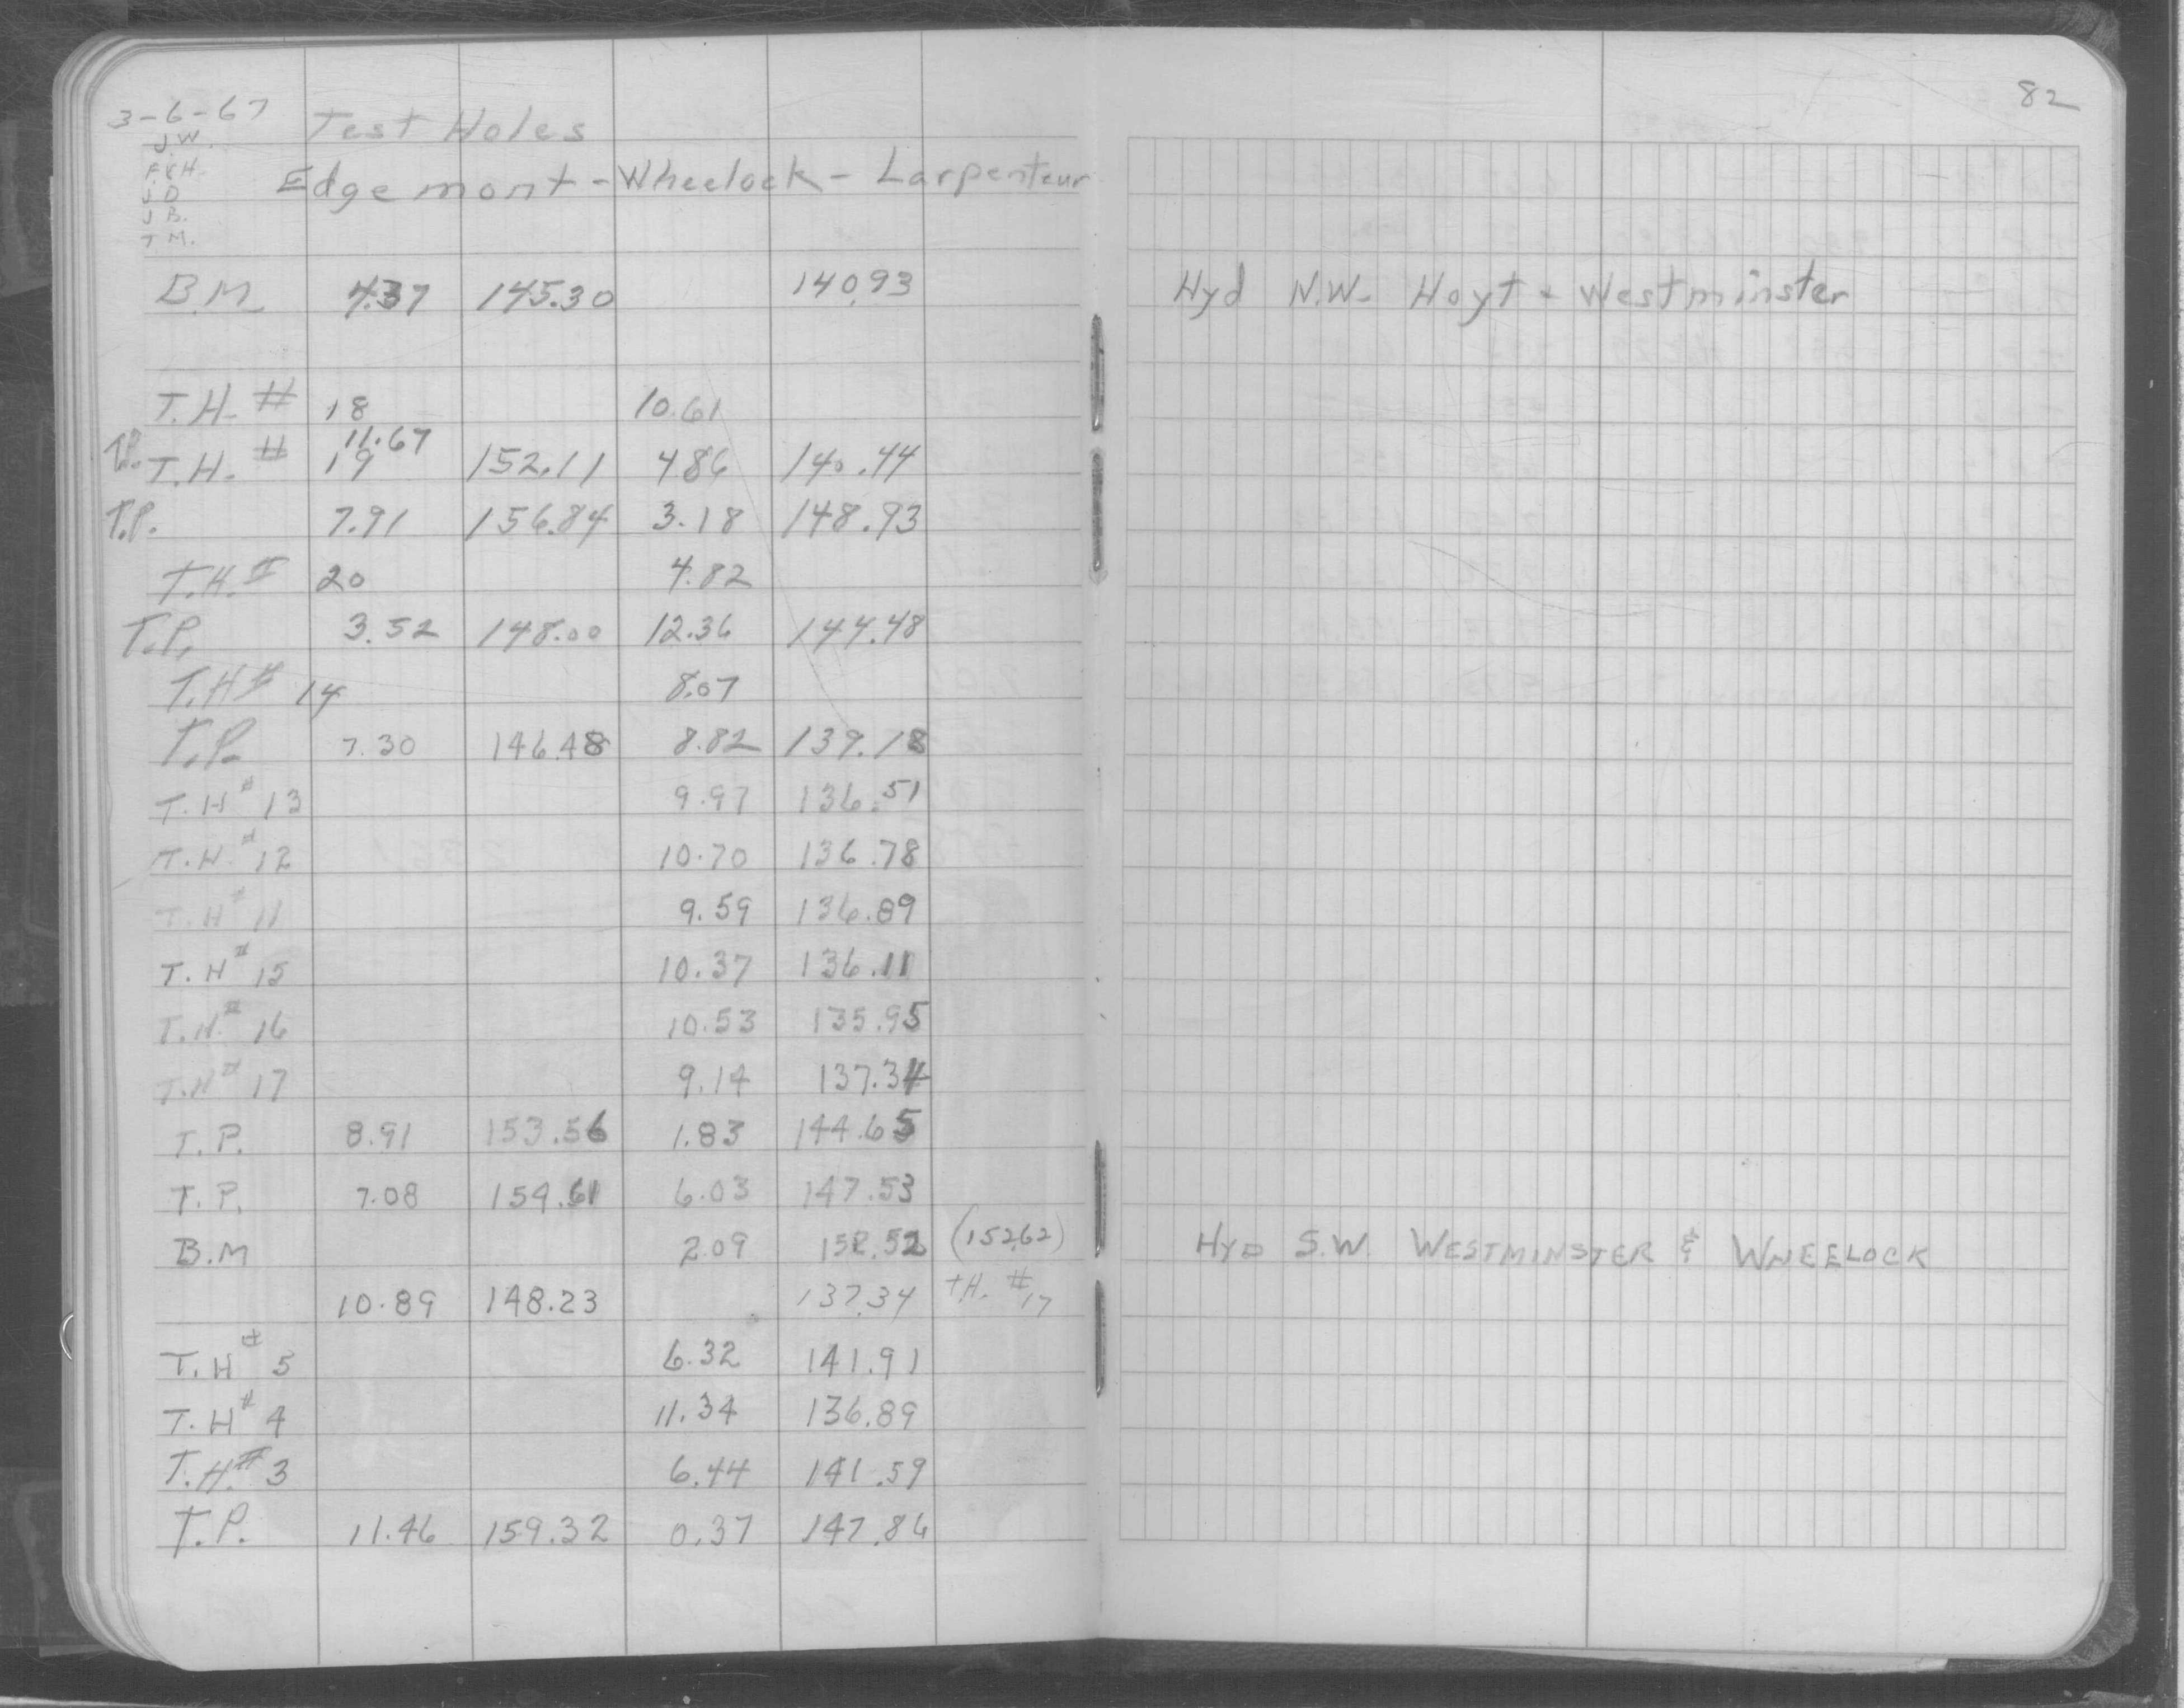 82
3-6-67 Test Holes
J.W.
F.K.H.
J D
J B.
T M.
Edgemont - Wheelock - Larpenteur
B.M. 4.37 145.30 140.93 Hyd N.W. Hoyt & Westminster
T.H. # 18 10.61
11.67
T.P. T.H. # 19 152.11 4.86 140.44
T.P. 7.91 156.84 3.18 148.93
T.H. # 20 4.82
T.P. 3.52 148.00 12.36 144.48
T.H # 14 8.07
T.P. 7.30 146.48 8.82 139.18
T.H # 13 9.97 136.51
T.H. # 12 10.70 136.78
T.H # 11 9.59 136.89
T.H # 15 10.37 136.11
T.H. # 16 10.53 135.95
T.H # 17 9.14 137.34
T.P. 8.91 153.56 1.83 144.65
T.P. 7.08 154.61 6.03 147.53
B.M 2.09 152.52 (152.62) HYD S.W. WESTMINSTER & WHEELOCK
10.89 148.23 137.34 T.H. # 17
T.H # 5 6.32 141.91
T.H # 4 11.34 136.89
T.H. # 3 6.44 141.59
T.P. 11.46 159.32 0.37 147.86